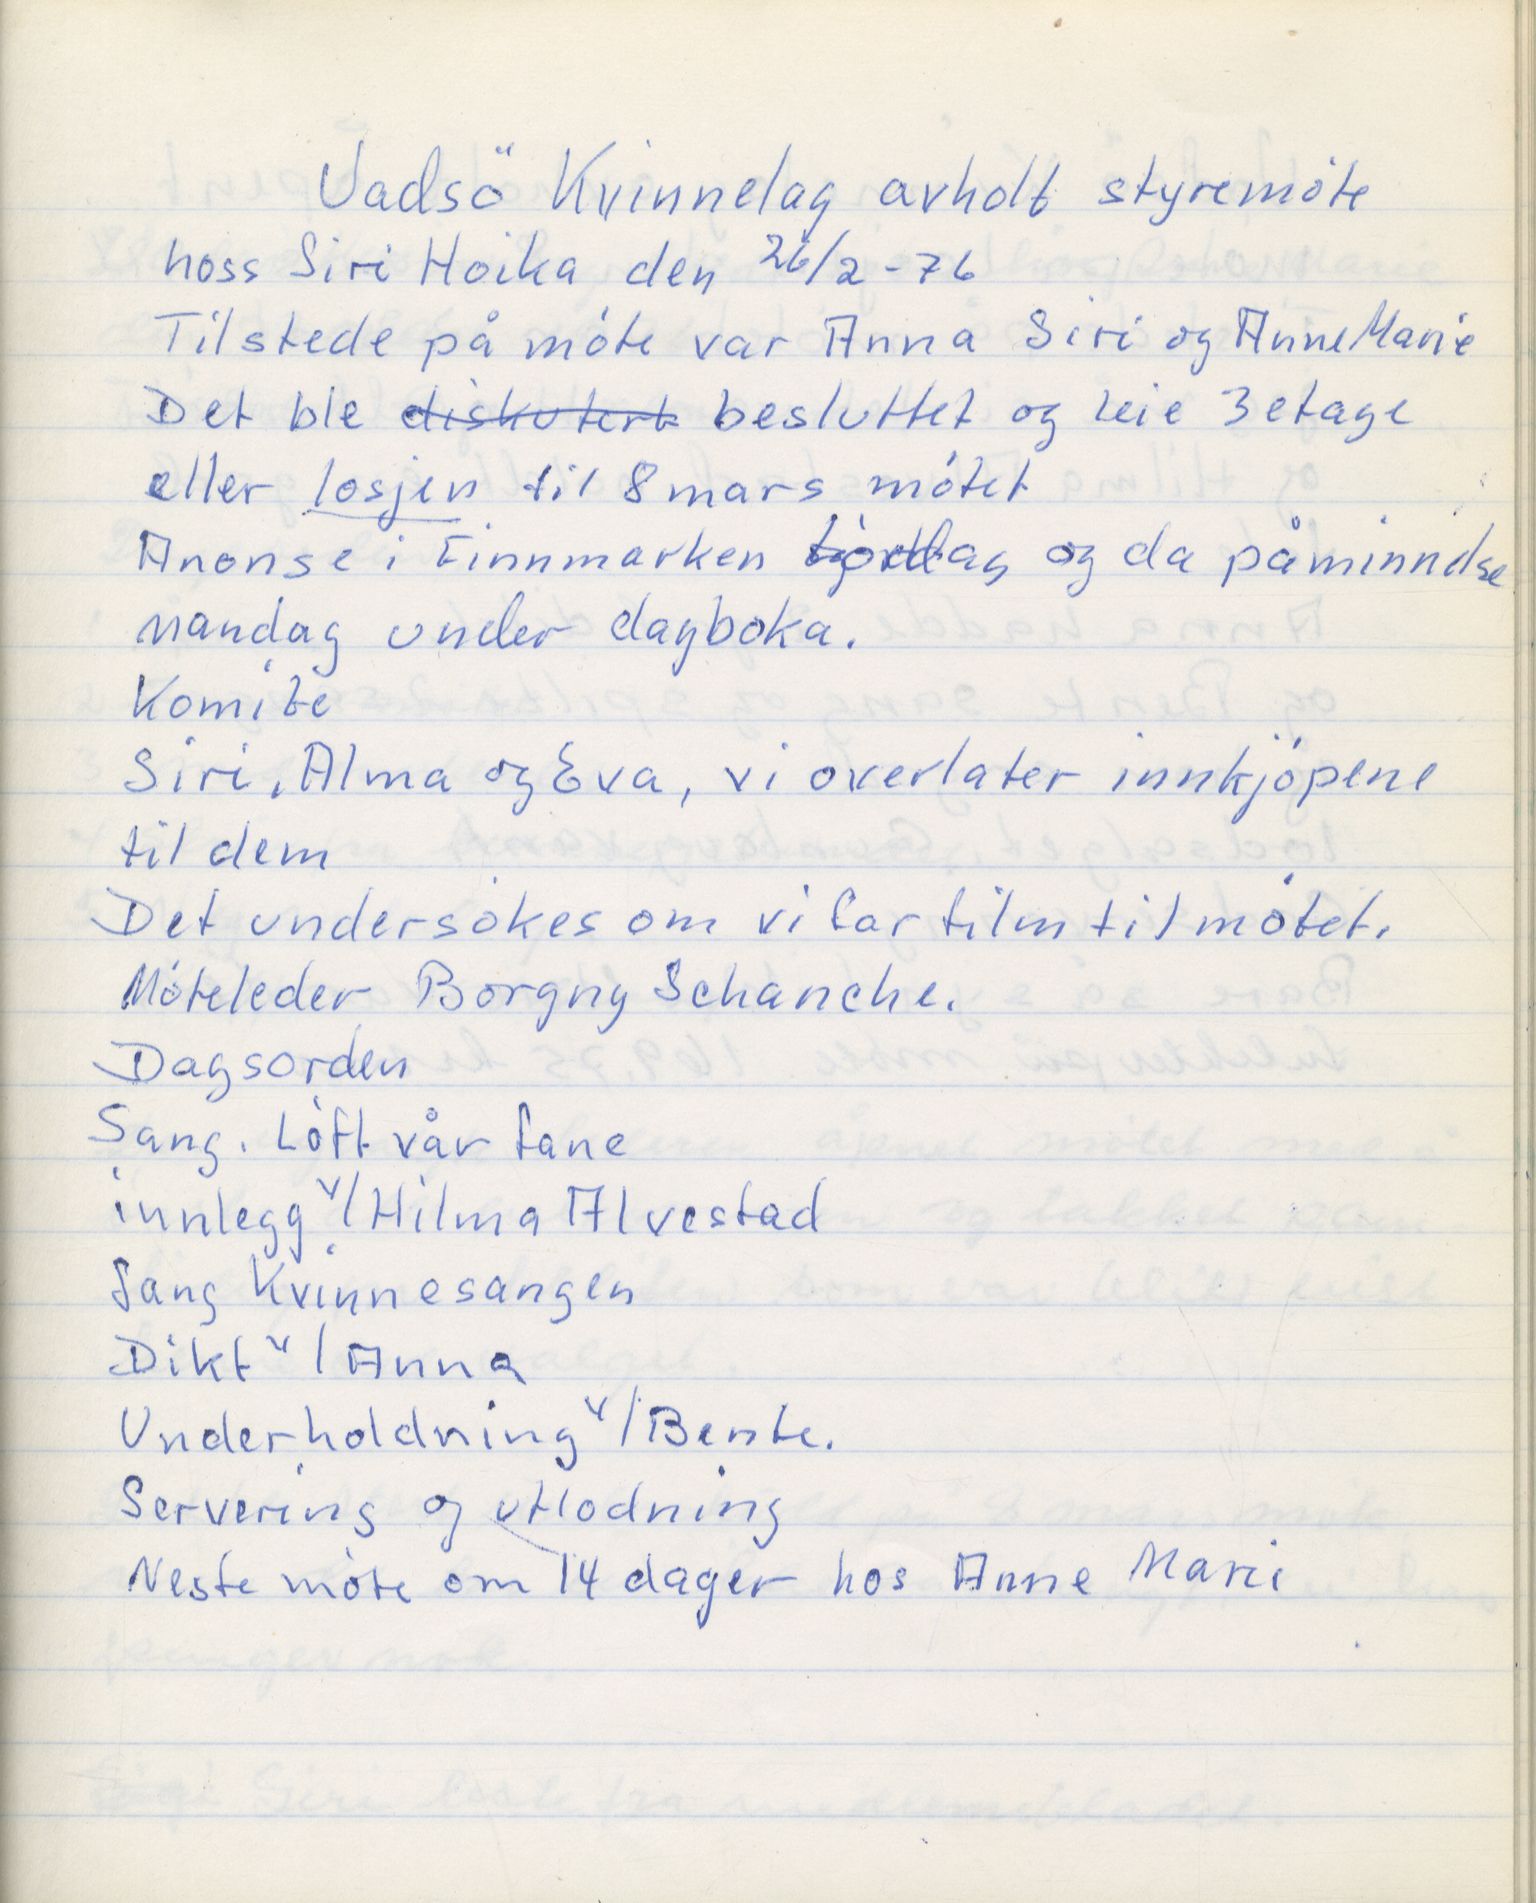 Vadsö Kvinnelag avholt styremöte
hoss Siri Hoika den 26/2-76
Tilstede på möte var Anna Siri og Anne Marie
Det ble diskutert besluttet og leie 3 etage
eller losjen til 8 mars mötet
Anonse i Finnmarken og da påminnelse
mandag under dagboka.
Komite
Siri, Alma og Eva, vi overlater innkjöpene
til dem
Det undersökes om vi får film til mötet.
Möteleder Borgny Schanche.
Dagsorden
Sang. Löft vår fane
innlegg v/Hilma Alvestad
Sang Kvinnesangen
Dikt v/Anna
Underholdning v/Bente.
Servering og utlodning
Neste möte om 14 dager hos Anne Marie